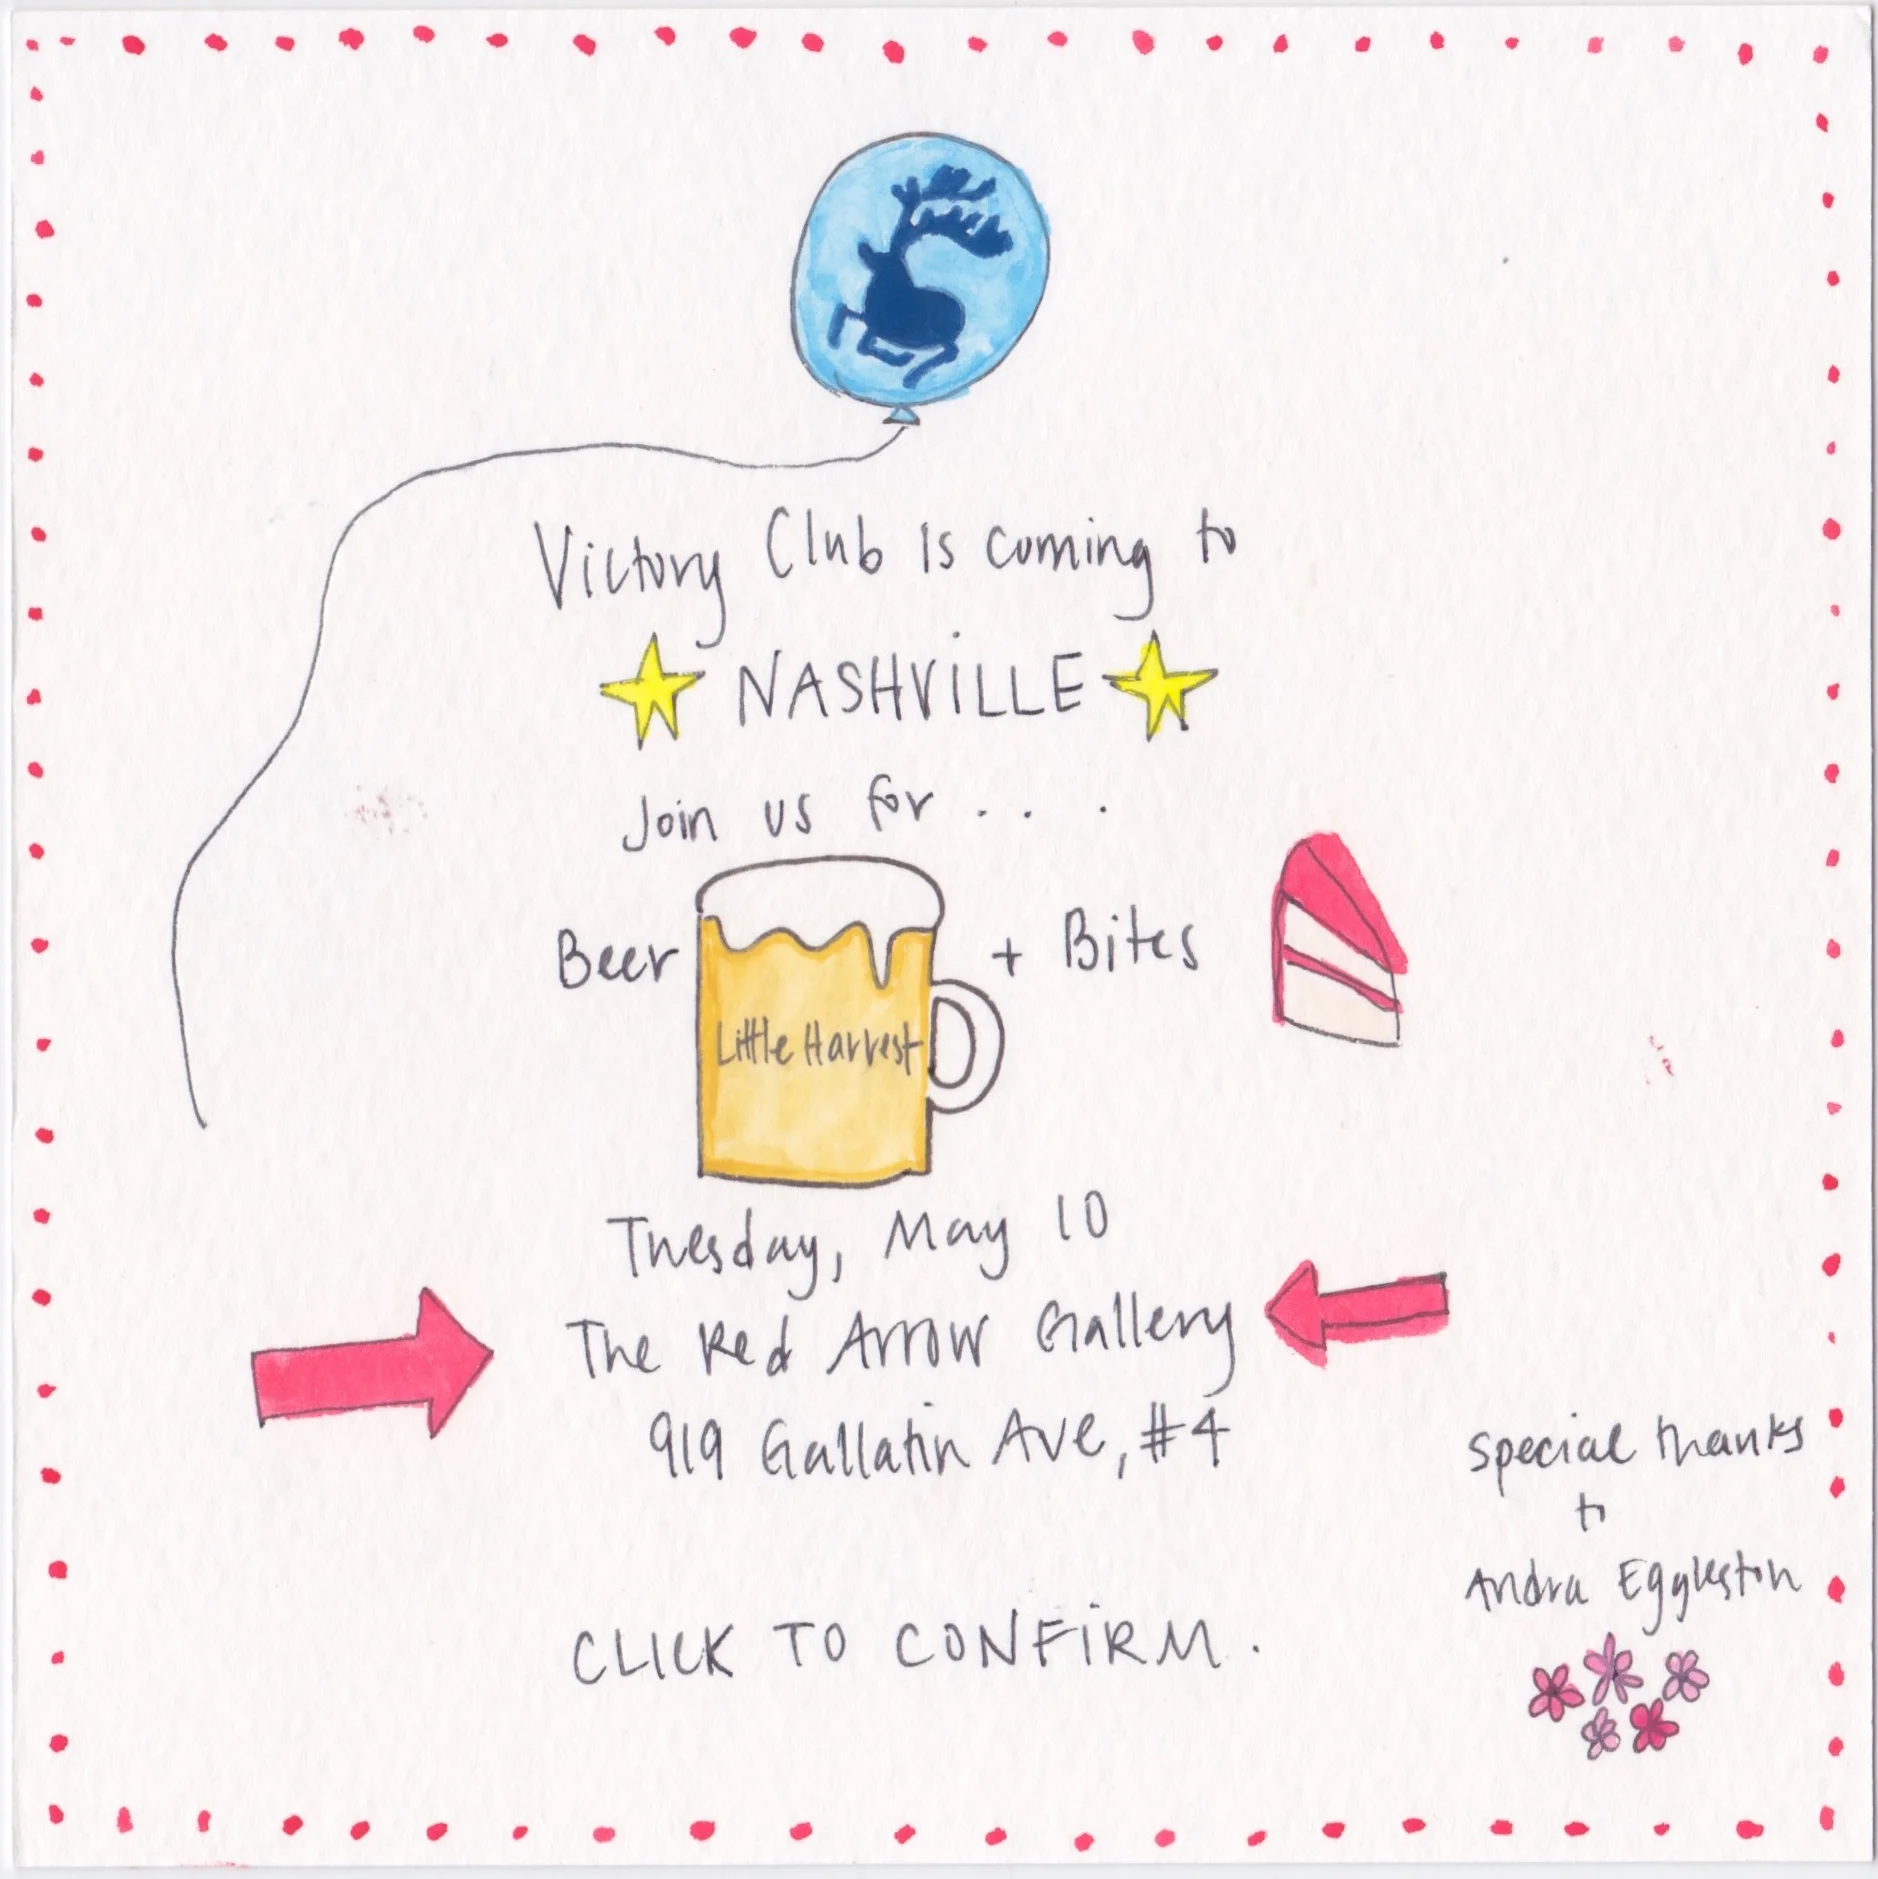 Victory Club is coming to
NASHVILLE
Join us for . . .
Beer + Bites
Little Harvest
Tuesday, May 10
The Red Arrow Gallery
919 Gallatin Ave, #4
special thanks
to
Andra Eggleston
CLICK TO CONFIRM.